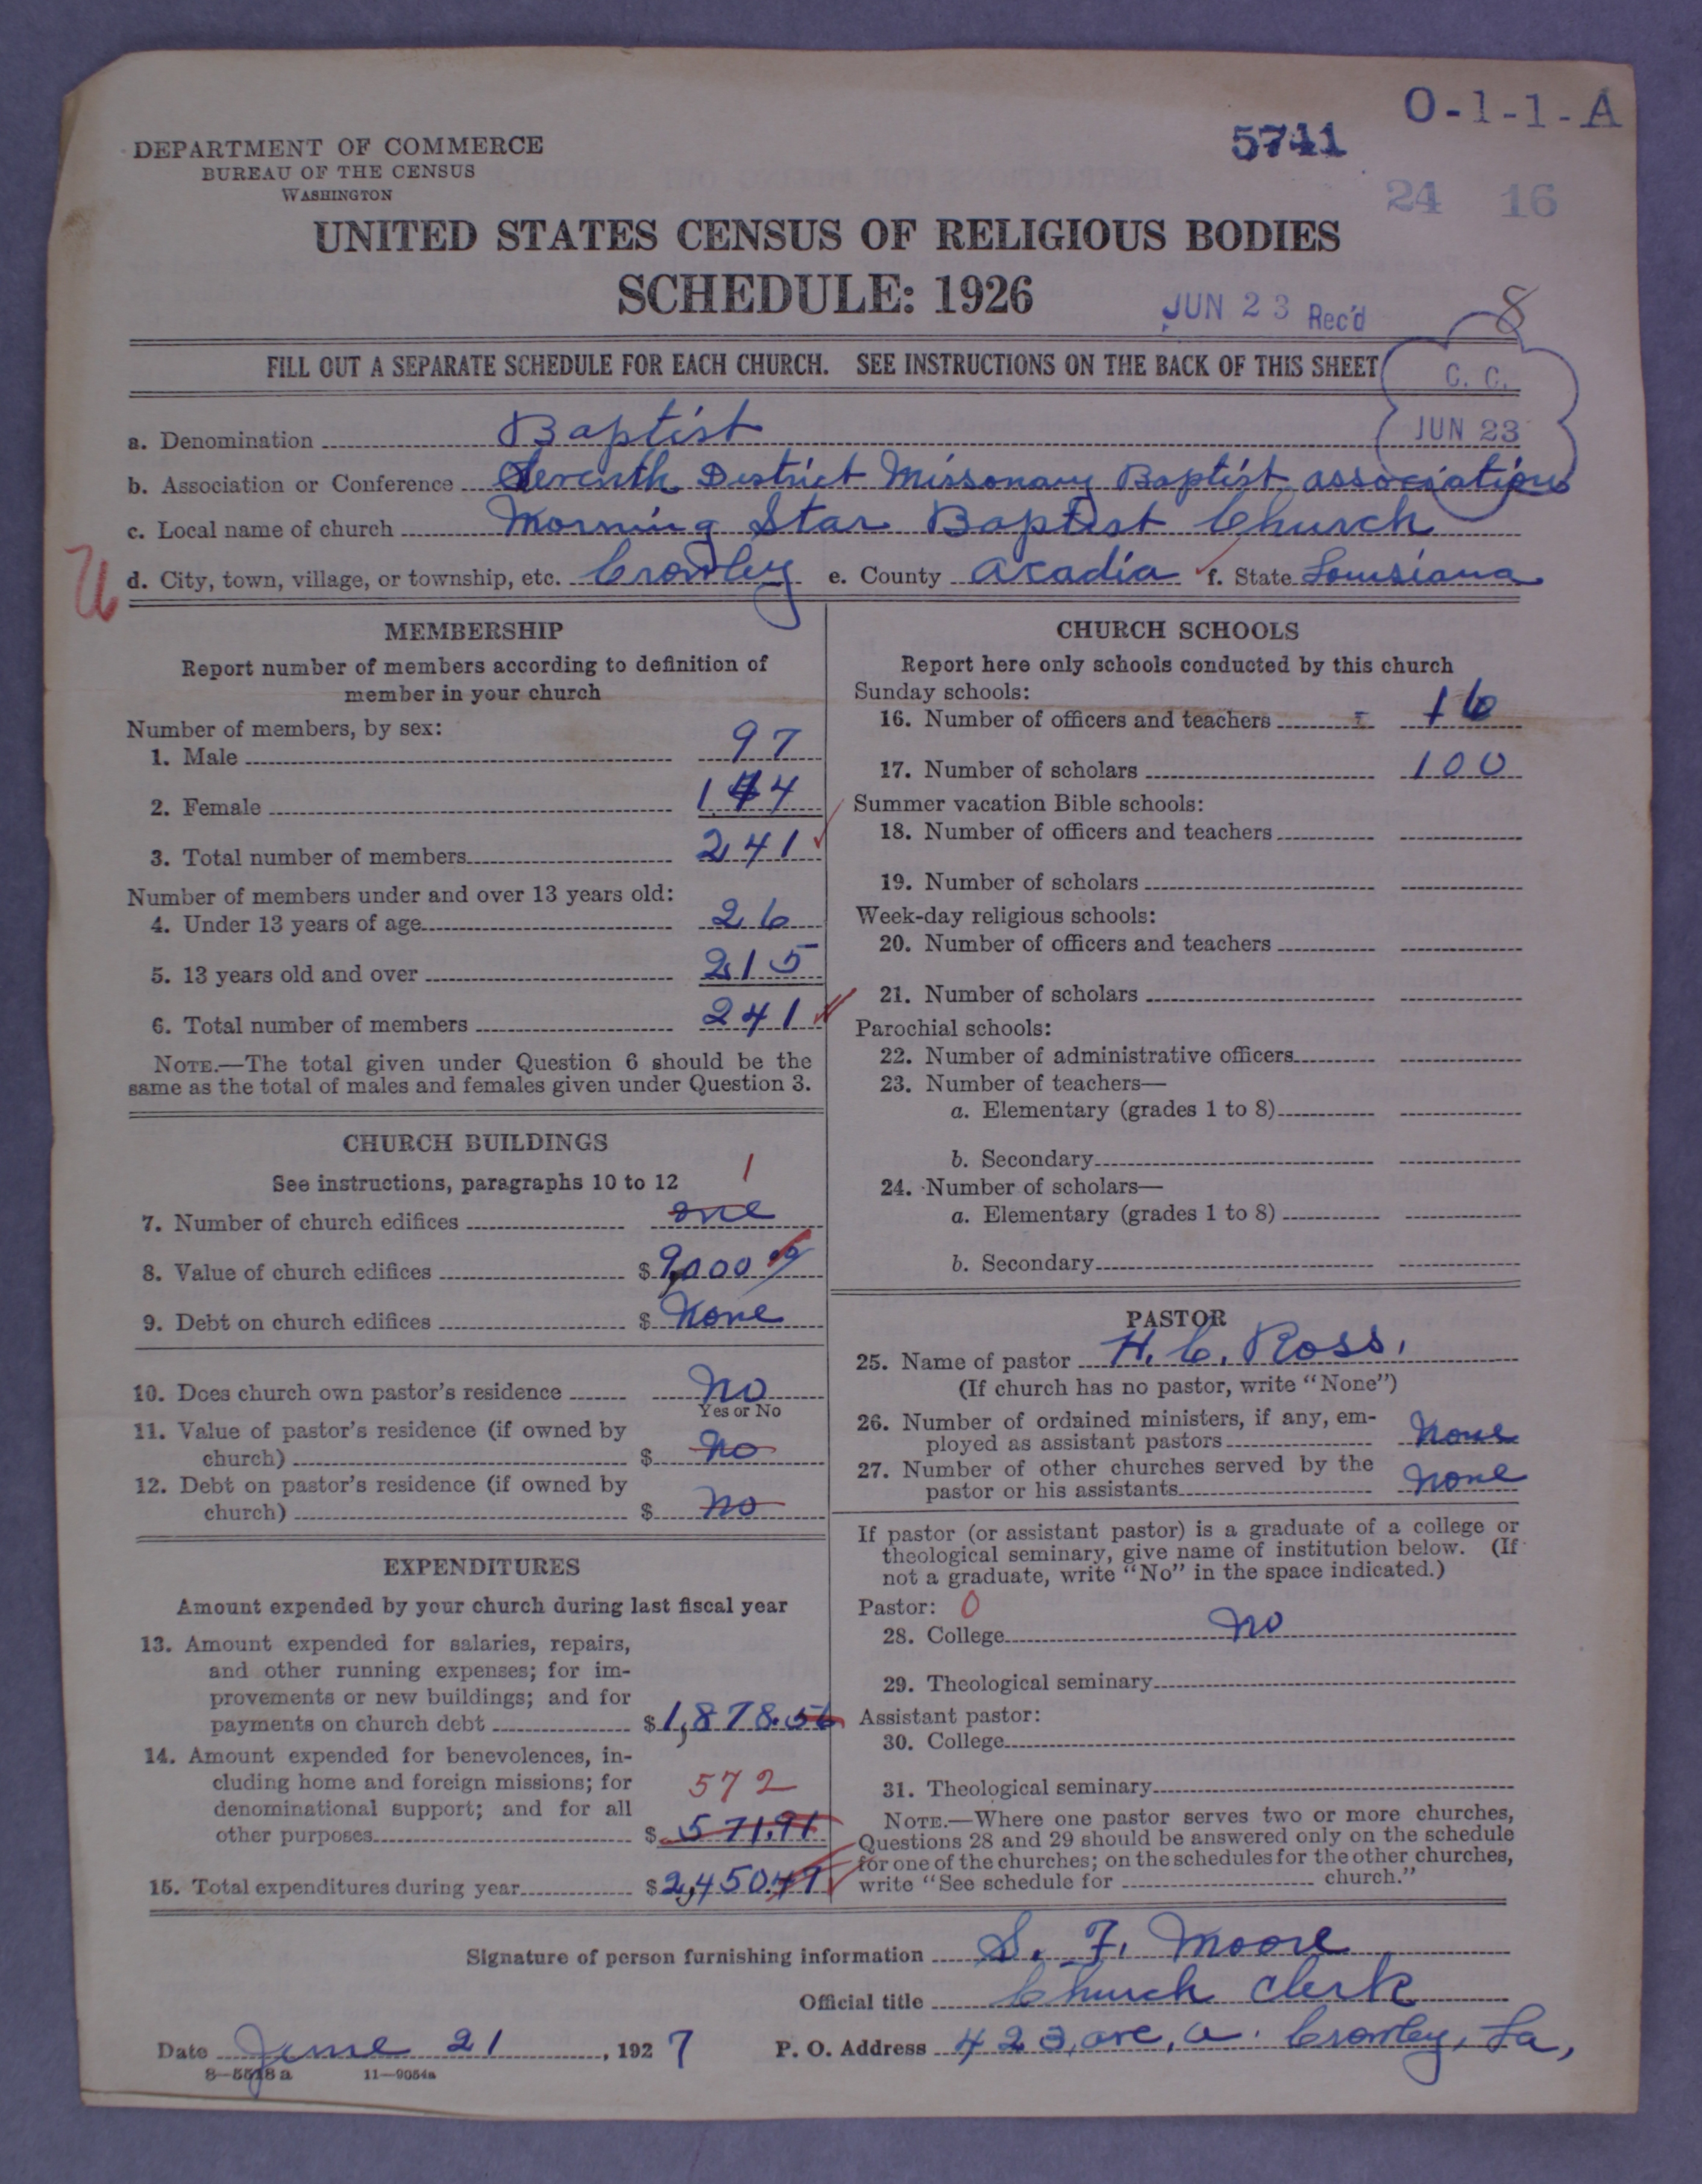 O-1-1-A
5741
24 16
DEPARTMENT OF COMMERCE
BUREAU OF THE CENSUS
WASHINGTON
UNITED STATES CENSUS OF RELIGIOUS BODIES
SCHEDULE: 1926
JUN 23 Rec'd
8
FILL OUT A SEPARATE SCHEDULE FOR EACH CHURCH. SEE INSTRUCTIONS ON THE BACK OF THIS SHEET
C. C.
JUN 23
a. Denomination Baptist
b. Association or Conference Seventh District Missonary Baptist association
c. Local name of church Morning Star Baptist Church
d. City, town, village, or township, etc. Crowley e. County Acadia f. State Louisiana
MEMBERSHIP
Report number of members according to definition of
member in your church
Number of members, by sex:
1. Male 97
2. Female 144
3. Total number of members 241
Number of members under and over 13 years old:
4. Under 13 years of age 26
5. 13 years old and over 215
6. Total number of members 241
NOTE.—The total given under Question 6 should be the
same as the total of males and females given under Question 3.
CHURCH BUILDINGS
See instructions, paragraphs 10 to 12
1
7. Number of church edifices one
8. Value of church edifices $ 9,000 00
9. Debt on church edifices $ None
10. Does church own pastor's residence No
Yes or No
11. Value of pastor's residence (if owned by
church) $ no
12. Debt on pastor's residence (if owned by
church) $ no
EXPENDITURES
Amount expended by your church during last fiscal year
13. Amount expended for salaries, repairs,
and other running expenses; for im-
provements or new buildings; and for
payments on church debt $ 1,878.56
14. Amount expended for benevolences, in-
cluding home and foreign missions; for
denominational support; and for all
572
other purposes $ 571.91
15. Total expenditures during year $ 2,450.47
CHURCH SCHOOLS
Report here only schools conducted by this church
Sunday schools:
16. Number of officers and teachers 16
17. Number of scholars 100
Summer vacation Bible schools:
18. Number of officers and teachers
19. Number of scholars
Week-day religious schools:
20. Number of officers and teachers
21. Number of scholars
Parochial schools:
22. Number of administrative officers
23. Number of teachers—
a. Elementary (grades 1 to 8)
b. Secondary
24. Number of scholars—
a. Elementary (grades 1 to 8)
b. Secondary
PASTOR
25. Name of pastor H. C. Ross.
(If church has no pastor, write "None")
26. Number of ordained ministers, if any, em-
ployed as assistant pastors None
27. Number of other churches served by the
pastor or his assistants None
If pastor (or assistant pastor) is a graduate of a college or
theological seminary, give name of institution below. (If
not a graduate, write "No" in the space indicated.)
Pastor: 0
28. College No
29. Theological seminary
Assistant pastor:
30. College
31. Theological seminary
NOTE.—Where one pastor serves two or more churches,
Questions 28 and 29 should be answered only on the schedule
for one of the churches; on the schedules for the other churches,
write "See schedule for church."
Signature of person furnishing information S. F. Moore
Official title Church Clerk
Date June 21, 1927 P. O. Address 423, ave, a. Crowley, La,
8—5518 a 11—9054a